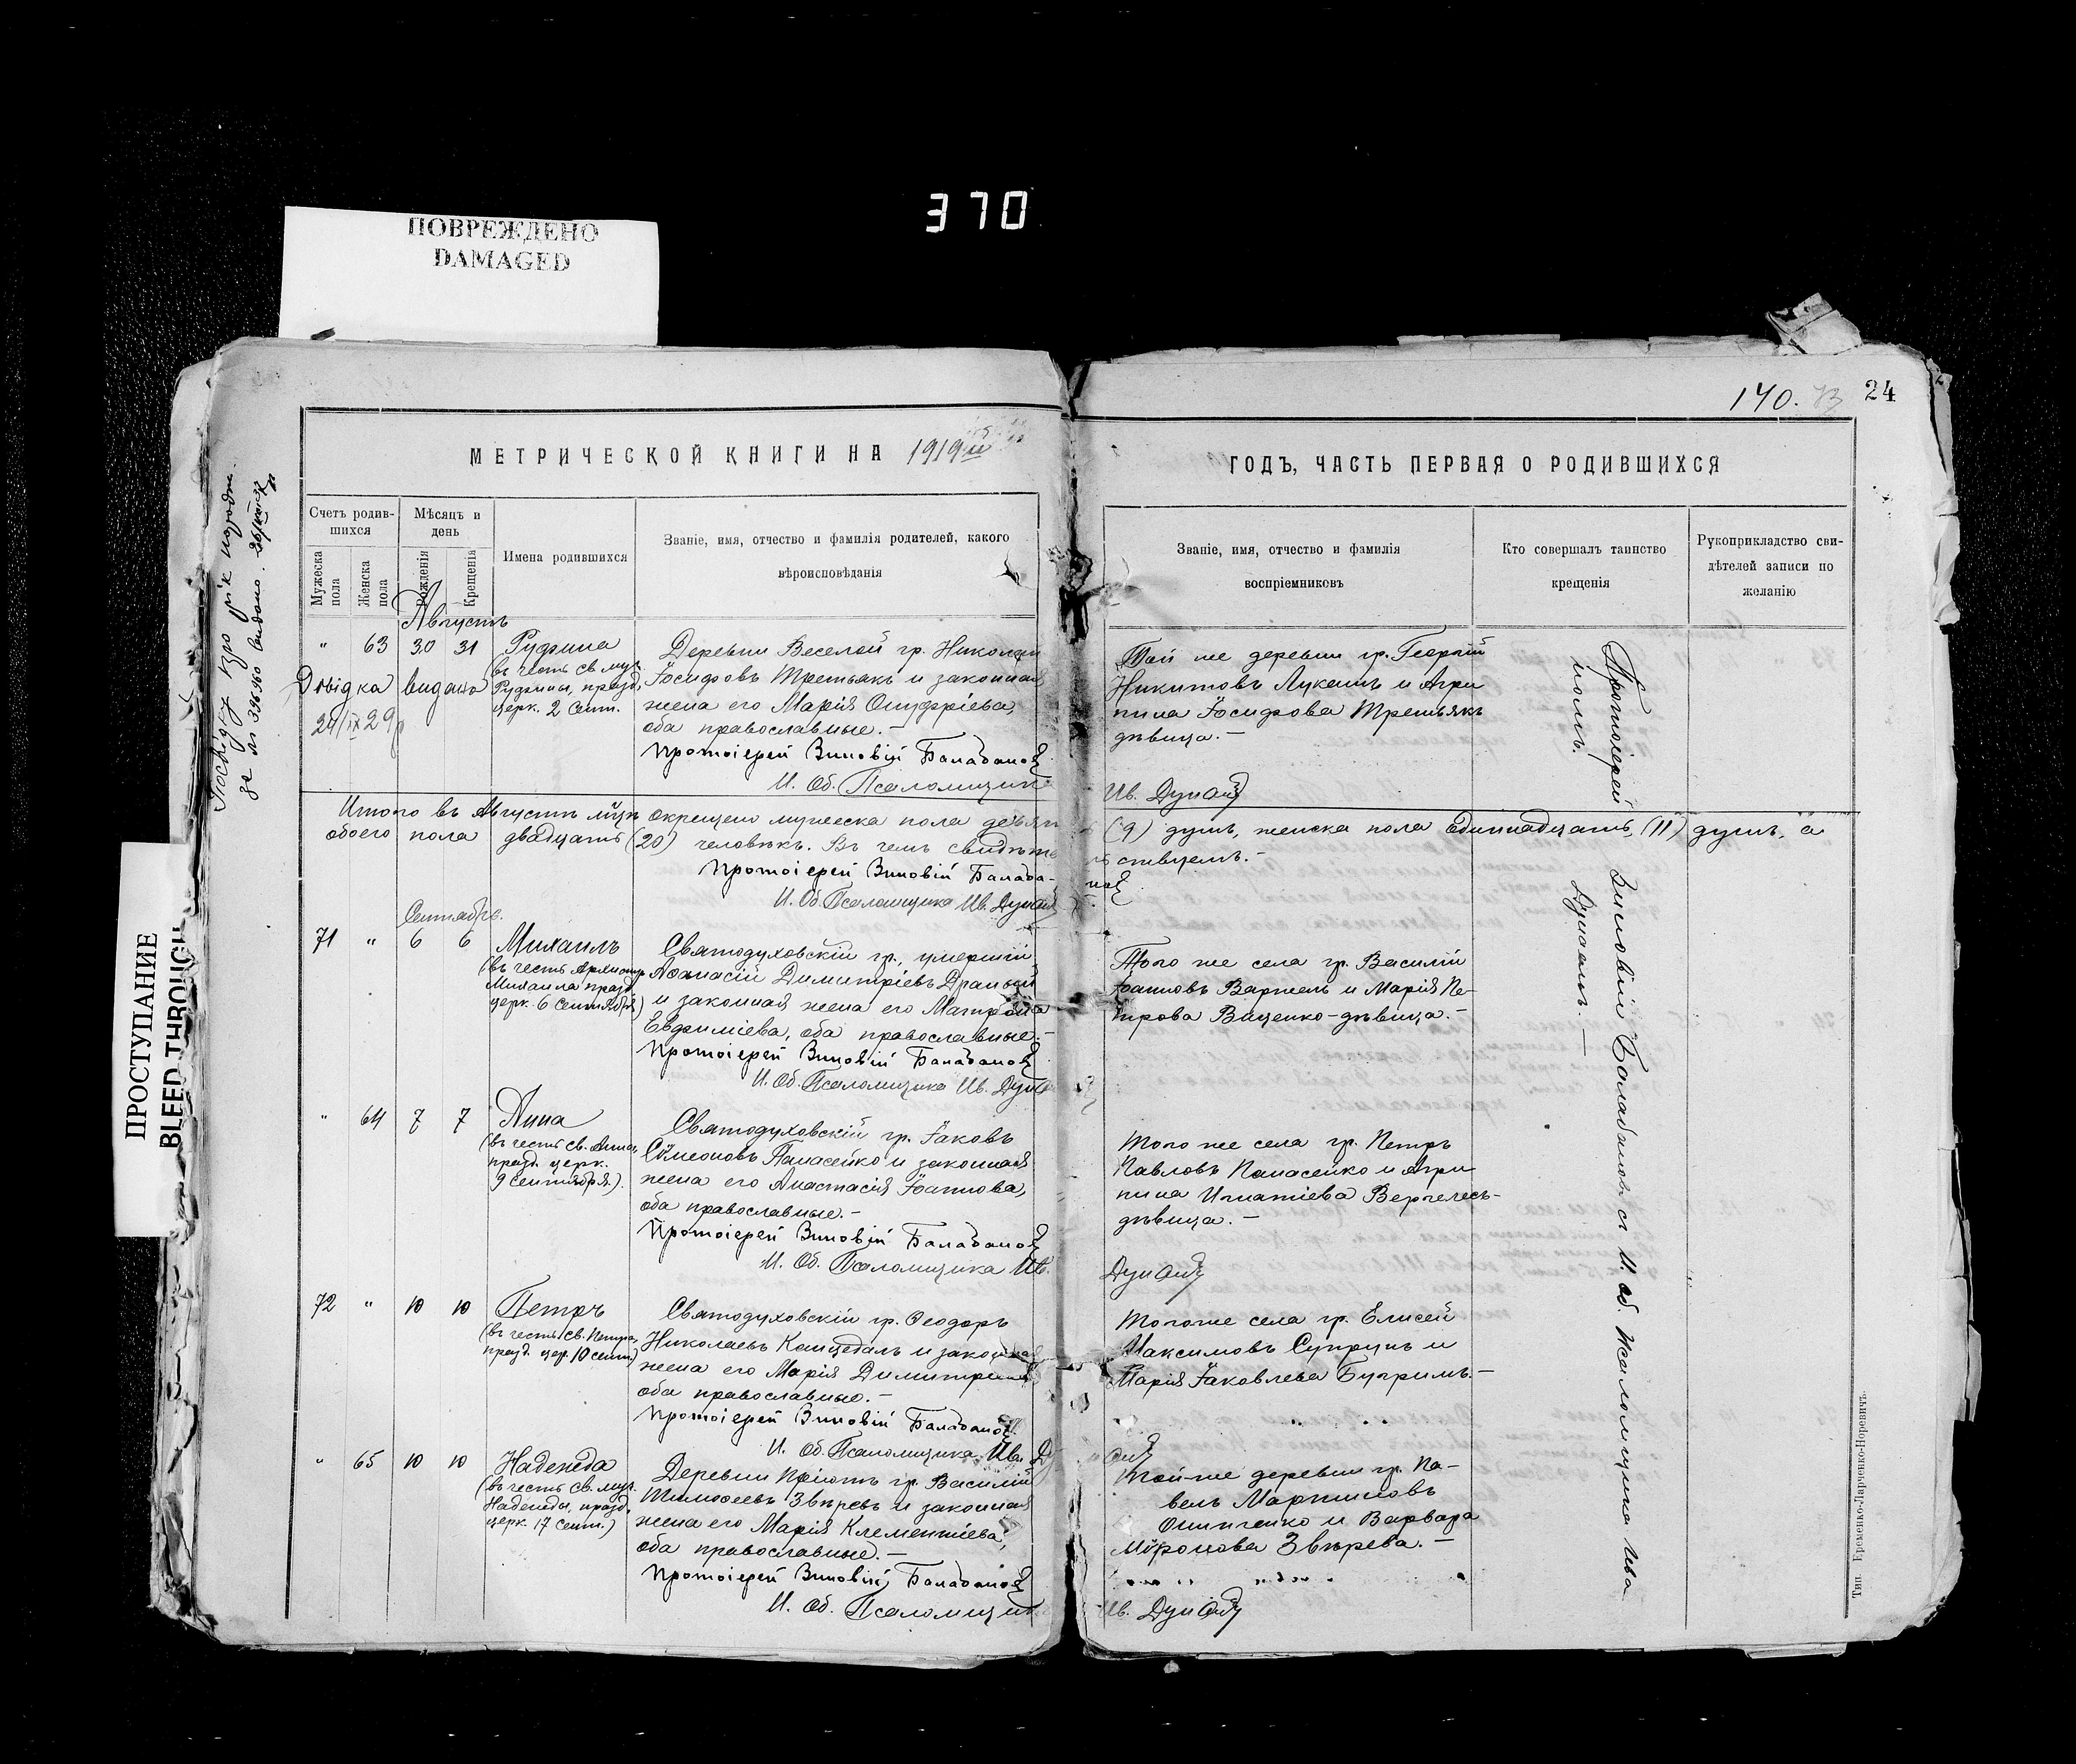 370
ПОВРЕЖДЕНО
DAMAGED
ПРОСТУПАНИЕ
BLEED THROUGH
140. 73 24
МЕТРИЧЕСКОЙ КНИГИ НА 1919й
Счетъ родив-
шихся
Мѣсяцъ и
день
Мужеска
пола
Женска
пола
Рожденія
Крещенія
Имена родившихся
Званіе, имя, отчество и фамилія родителей, какого
вѣроисповѣданія
Августъ
" 63 30 31 Руфина
(въ честь св. муч.
Руфины, празд.
церк. 2 Сент.
Довідка видана
24/IX 29р
за № 396960 видано.
Деревни Веселой гр. Николай
Іосифовъ Третьякъ и законная
жена его Марія Онуфріева,
оба православные.-
Протоіерей Зиновій Балабановъ
И. Об. Псаломщика
Итого въ Августѣ м-цѣ окрещено мужеска пола девять
обоего пола двадцать (20) человѣкъ. Въ чемъ свидѣте
Протоіерей Зиновій Балаба-
И. Об. Псаломщика Ив. Дунай
Сентябрь.
71 " 6 6 Михаилъ
(въ честь Архистр.
Михаила празд.
церк. 6 Сентября)
Святодуховскій гр., умершій
Аѳанасій Димитріевъ Драный
и законная жена его Матрона
Евфиміева, оба православные.-
Протоіерей Зиновій Балабановъ
И. Об. Псаломщика Ив. Дуна
" 64 7 7 Анна
(въ честь св. Анны,
празд. церк.
9 Сентября).
Святодуховскій гр. Іаковъ
Сѵмеоновъ Панасейко и законная
жена его Анастасія Іоаннова,
оба православные.-
Протоіерей Зиновій Балабановъ
И. Об. Псаломщика Ив.
72 " 10 10 Петръ
(въ честь св. Петра,
празд. цер. 10 сент.)
Святодуховскій гр. Ѳеодоръ
Николаевъ и законная
жена его Марія Димитріева
оба православные.-
Протоіерей Зиновій Балабановъ
И. Об. Псаломщика Ив. Ду
" 65 10 10 Надежда
(въ честь св. муч.
Надежды, празд.
церк. 17 Сент.)
Деревни Пріютъ гр. Василій
Тимоѳеевъ Звѣревъ и законная
жена его Марія Климентіева,
оба православные.-
Протоіерей Зиновій Балабановъ
И. Об. Псаломщик
ГОДЪ, ЧАСТЬ ПЕРВАЯ О РОДИВШИХСЯ
Званіе, имя, отчество и фамилія
воспріемниковъ
Кто совершалъ таинство
крещенія
Рукоприкладство сви-
дѣтелей записи по
желанію
Той же деревни гр. Георгій
Никитовъ Лукашъ и Агри
пина Іосифова Третьякъ
дѣвица.-
Ив. Дунай
(9) душъ, женска пола Одиннадцать (11) душъ, а
ствуемъ.-
Того же села гр. Василій
Іоанновъ Варжелъ и Марія Пе-
трова Ващенко-дѣвица.-
Того же села гр. Петръ
Павловъ Панасейко и Агри
пина Игнатіева Вергелесъ-
дѣвица.-
Дунай
Того же села гр. Елисей
Максимовъ Супрунъ и
Марія Іаковлева Бугримъ.-
Той-же деревни гр. Па-
велъ Мартиновъ
Онипченко и Варвара
Мѵронова Звѣрева.-
Ив. Дунай
Протоіерей Зиновій Балабановъ съ И. об. псаломщика Ива
номъ Дунаемъ.-
Тип. Еременко-Ларченко-Норевичъ.